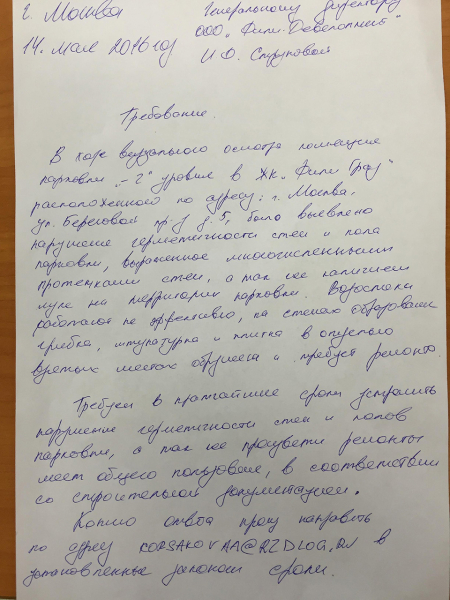 г. Москва Генеральному директору
ООО „Фили-Девелопмент"
14. мая 2016 год И.О. Струковой
Требование.
В ходе визуального осмотра помещение
парковки „-2" уровня в ЖК „Фили Град"
расположенного по адресу: г. Москва,
ул. Береговой пр-д д 5, было выявлено
нарушение герметичности стен и пола
парковки, выраженное многочисленными
протечками стен, а так же наличием
луж на территории парковки. Водостоки
работают не эффективно, на стенах образование
грибка, штукатурка и плитка в
местах обрушена и требует ремонта.
Требуем в кратчайшие сроки устранить
нарушение герметичности стен и полов
парковки, а так же произвести ремонты
мест общего пользования, в соответствии
со строительной документацией.
Копию ответа прошу направить
по адресу KORSAKOVAA@RZDLOG.RU в
установленные законом сроки.